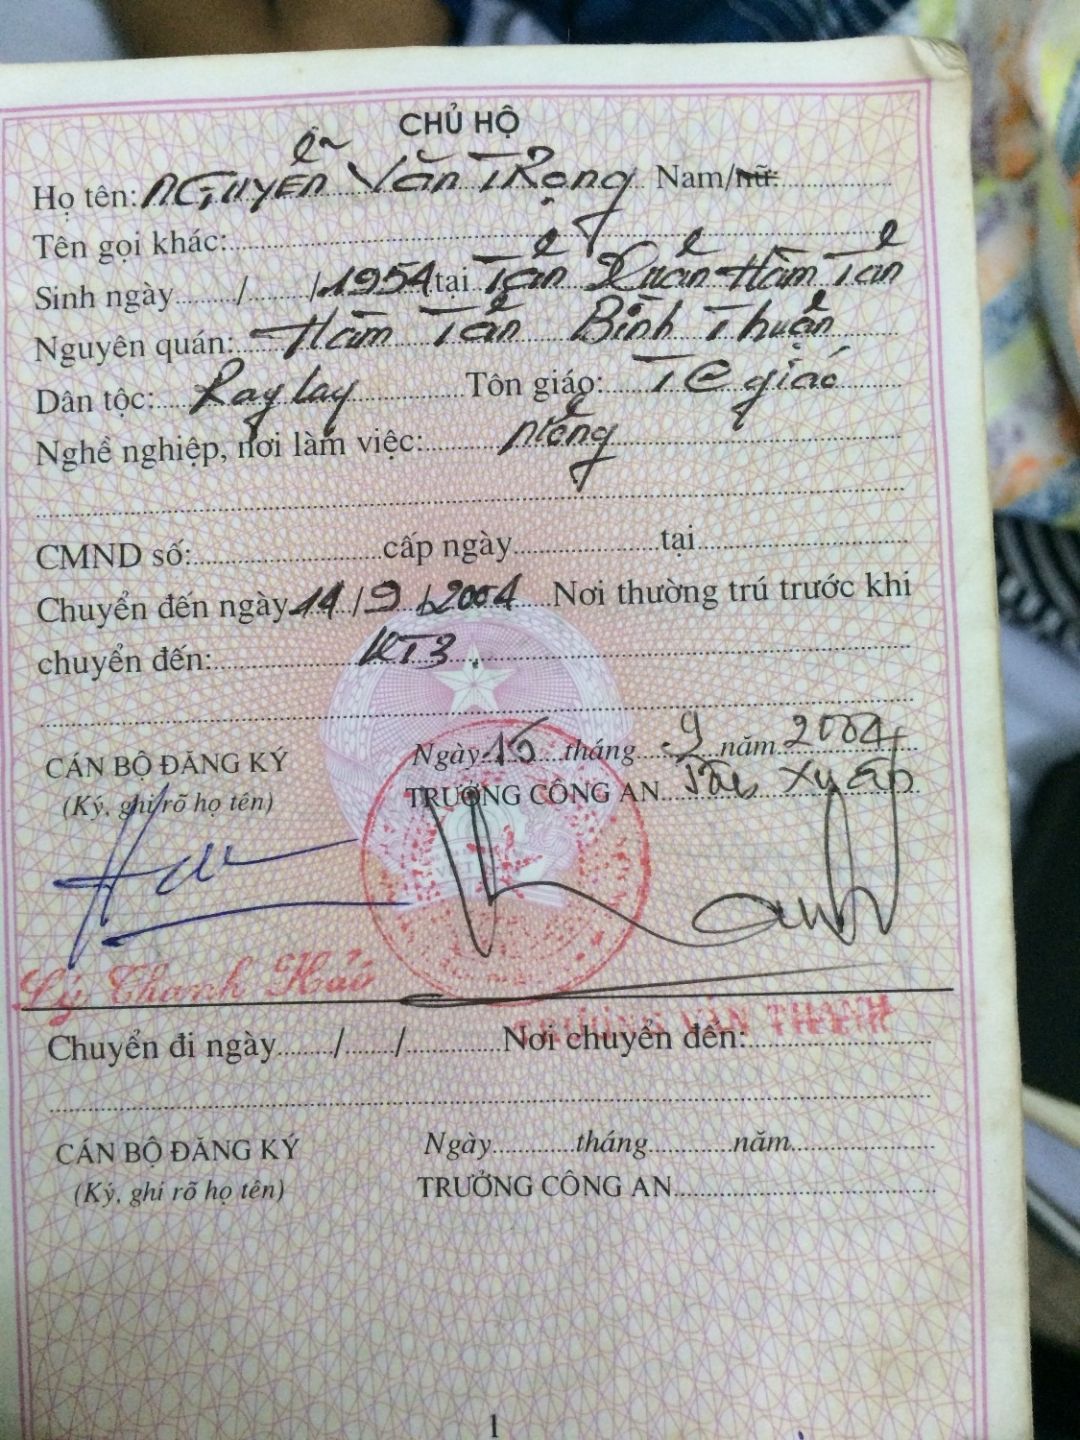 CHỦ HỘ
Họ tên: NGUYỄN Văn Trọng Nam/nữ:
Tên gọi khác:
Sinh ngày / /1954 tại Tân Xuân Hàm Tân
Nguyên quán: Hàm Tân Bình Thuận
Dân tộc: Ray lay Tôn giáo: T C giáo
Nghề nghiệp, nơi làm việc: nông
CMND số: cấp ngày tại
Chuyển đến ngày 14/9/2004 Nơi thường trú trước khi
chuyển đến: KT3.
CÁN BỘ ĐĂNG KÝ Ngày 15 tháng 9 năm 2004
(Ký, ghi rõ họ tên) TRƯỞNG CÔNG AN Tân Xuân
Lý Thanh Hảo
TRƯƠNG VĂN THANH
Chuyển đi ngày / / Nơi chuyển đến:
CÁN BỘ ĐĂNG KÝ Ngày tháng năm
(Ký, ghi rõ họ tên) TRƯỞNG CÔNG AN
1